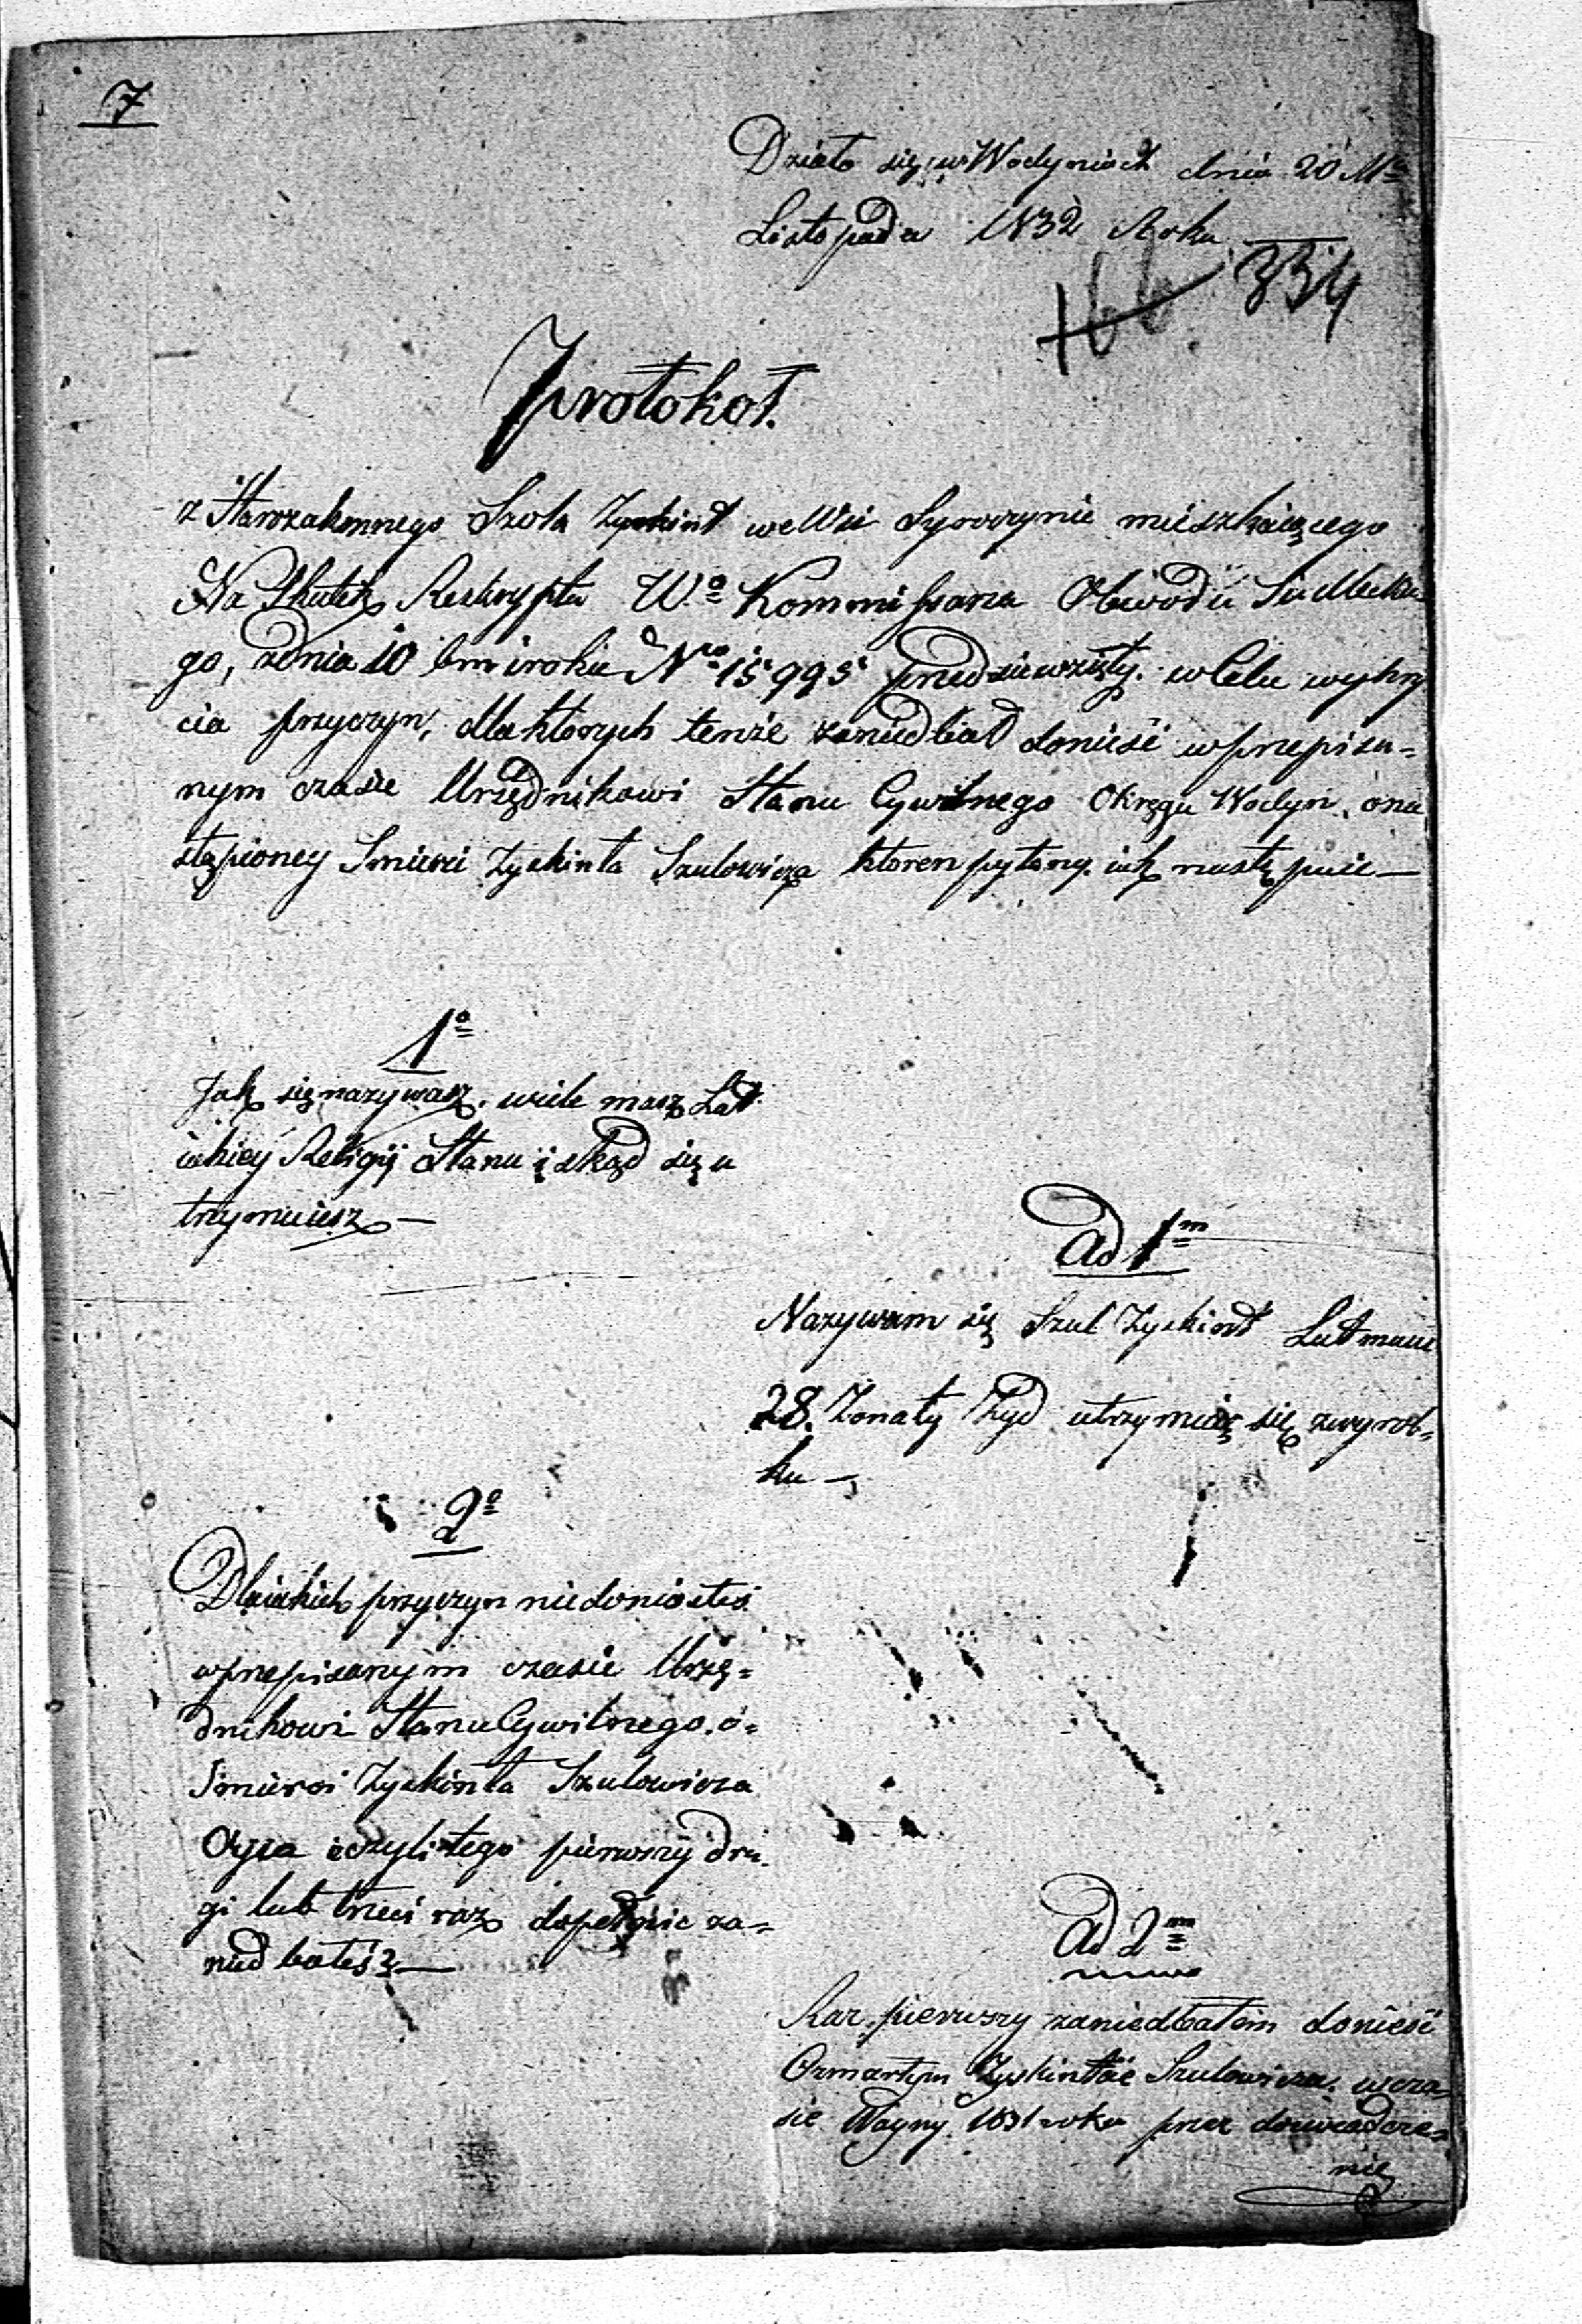 7
Działo się w Wodyniach dnia 20 Mca
Listopada 1832 Roku
166. 334
Protokoł.
z Starozakonnego Szola Zyskind we Wsi Syroczynie mieszkaiącego
Na Skutek Reskryptu Wo Kommissarza Obwodu Siedleckie
go, z dnia 10 bm i roku Nro 15995 przedsiewzięty. w Celu wykry
cia przyczyn, dla ktorych tenże zaniedbał donieść w przepisa=
nym czasie Urzędnikowi Stanu Cywilnego Okręgu Wodyn. o na
stąpioney Smierci Zyskinta Szulowicza ktoren pytany. iak następuie —
1o
Jak się nazywasz. wiele masz Lat
iakiey Religij Stanu i skąd się u
trzymuiesz —
Ad 1m
Nazywam się Szul Zyskind Lat mam
28. Zonaty Zyd utrzymuię się z wyrob=
ku —
2o
Dla iakich przyczyn niedoniosłeś
w przepisanym czasie Urzę=
dnikowi Stanu Cywilnego. o=
Smierci Zyskinta Szulowicza
Oyca i czyli tego pierwszy dru
gi lub trzeci raz dopełnic za=
niedbałeś? —
Ad 2m
Raz pierwszy zaniedbałem donieść
O zmarłym Zyskintcie Szulowiczu. w cza=
sie Woyny 1831 roku przez doswiadcze=
nie